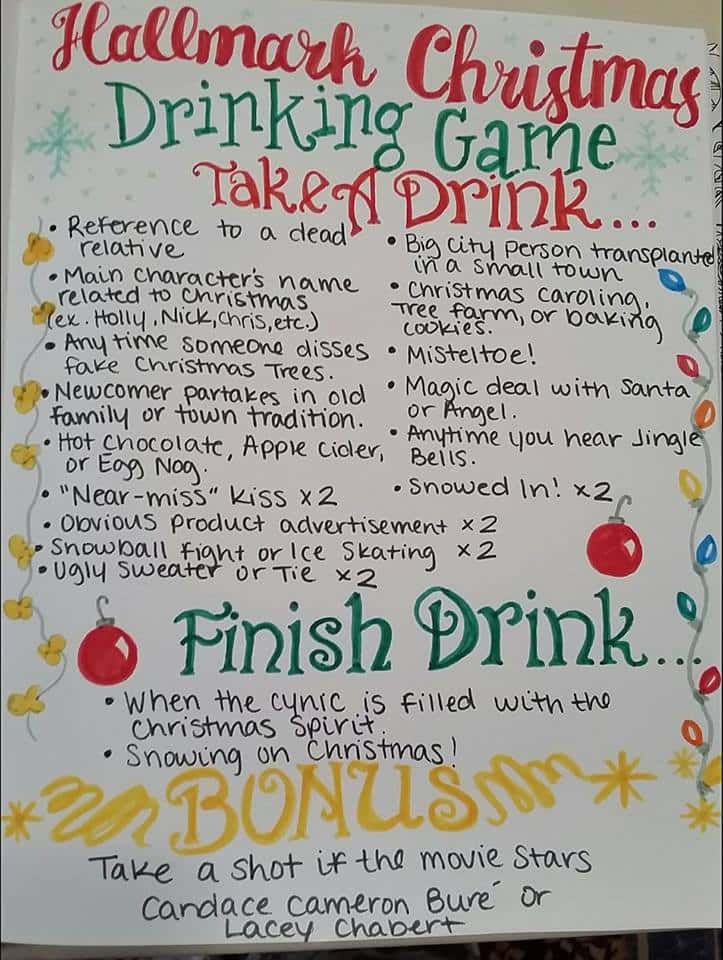 Hallmark Christmas
Drinking Game
Take A Drink...
• Reference to a dead
relative
• Main character's name
related to Christmas
(ex. Holly, Nick, Chris, etc.)
• Any time someone disses
fake Christmas Trees.
• Newcomer partakes in old
family or town tradition.
• Hot Chocolate, Apple Cider,
or Egg Nog.
• "Near-miss" kiss x2
• Obvious product advertisement x2
• Snowball fight or Ice Skating x2
• Ugly Sweater or Tie x2
• Big City Person transplante
in a small town
• Christmas caroling,
Tree farm, or baking
cookies.
• Misteltoe!
• Magic deal with Santa
or Angel.
• Anytime you hear Jingle
Bells.
• Snowed In! x2
Finish Drink...
• When the cynic is filled with the
Christmas Spirit.
• Snowing on Christmas!
BONUS
Take a shot if the movie stars
Candace Cameron Buré or
Lacey Chabert